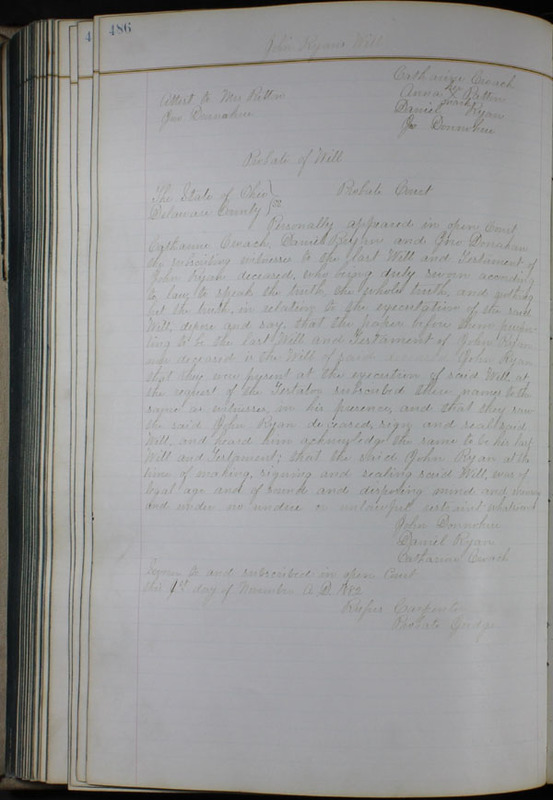 486
John Ryans Will
Catharine Cusach
Attest to Mrs Patton
Anna her x mark Patton
Jno Donnahue
Daniel Ryan
Jno Donnohue
Probate of Will
The State of Ohio
Delaware County } ss Probate Court
Personally appeared in open Court
Catharine Cusach, Daniel Ryan and Jno Donahue
the subscribing witnesses to the last Will and Testament of
John Ryan, deceased, who being duly sworn according
to law, to speak the truth, the whole truth, and nothing
but the truth, in relation to the execution of the said
Will, depose and say, that the paper before them purpor
ting to be the last Will and Testament of John Ryan
now deceased is the Will of said John Ryan
that they were present at the execution of said Will, at
the request of the Testator subscribed their names to the
same as witnesses, in his presence, and that they saw
the said John Ryan deceased, sign and seal said
Will, and heard him acknowledge the same to be his last
Will and Testament; that the said John Ryan at the
time of making, signing and sealing said Will, was of
legal age and of sound and disposing mind and memory
and under no undue or unlawful restraint whatever
John Donnohue
Daniel Ryan
Catharine Cusach
Sworn to and subscribed in open Court
this day of November A.D. 1882
Rufus Carpenter
Probate Judge